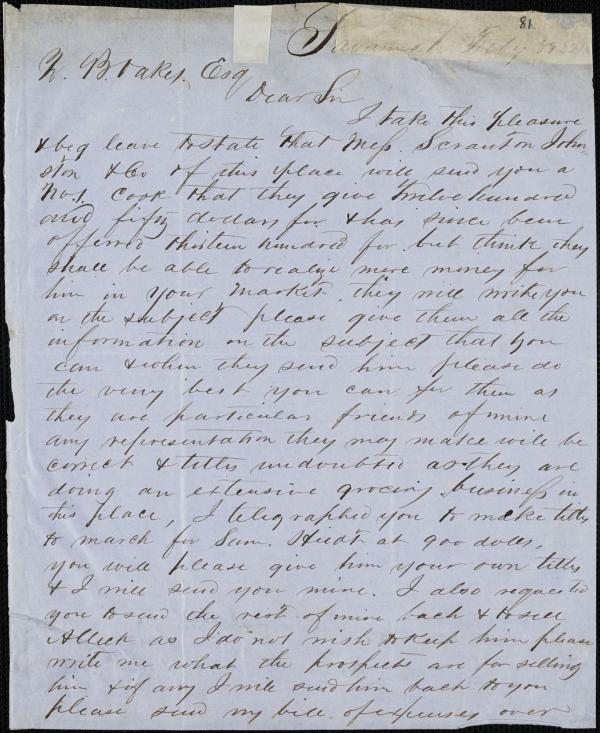 81
Savannah Feby
Z. B. Oakes. Esq
Dear Sir
I take this pleasure
& beg leave to state that Mess. Scranton John-
ston & Co of this place will send you a
No. 1. Cook that they give twelve hundred
and fifty dollars for & has since been
offerred thirteen hundred for but think they
shall be able to realize more money for
him in your market, they will write you
on the subject please give them all the
information on the subject that you
can & when they send him please do
the very best you can for them as
they are particular friends of mine
any representation they may make will be
correct & titles undoubted as they are
doing an extensive grocing business in
this place, I telegraphed you to make titles
to march for Sam. at 900 dolls,
you will please give him your own titles
& I will send you mine. I also requested
you to send the rest of mine back & to sell
Alleck as I do not wish to keep him please
write me what the prospects are for selling
him & if any I will send him back to you
please send my bill of expenses over